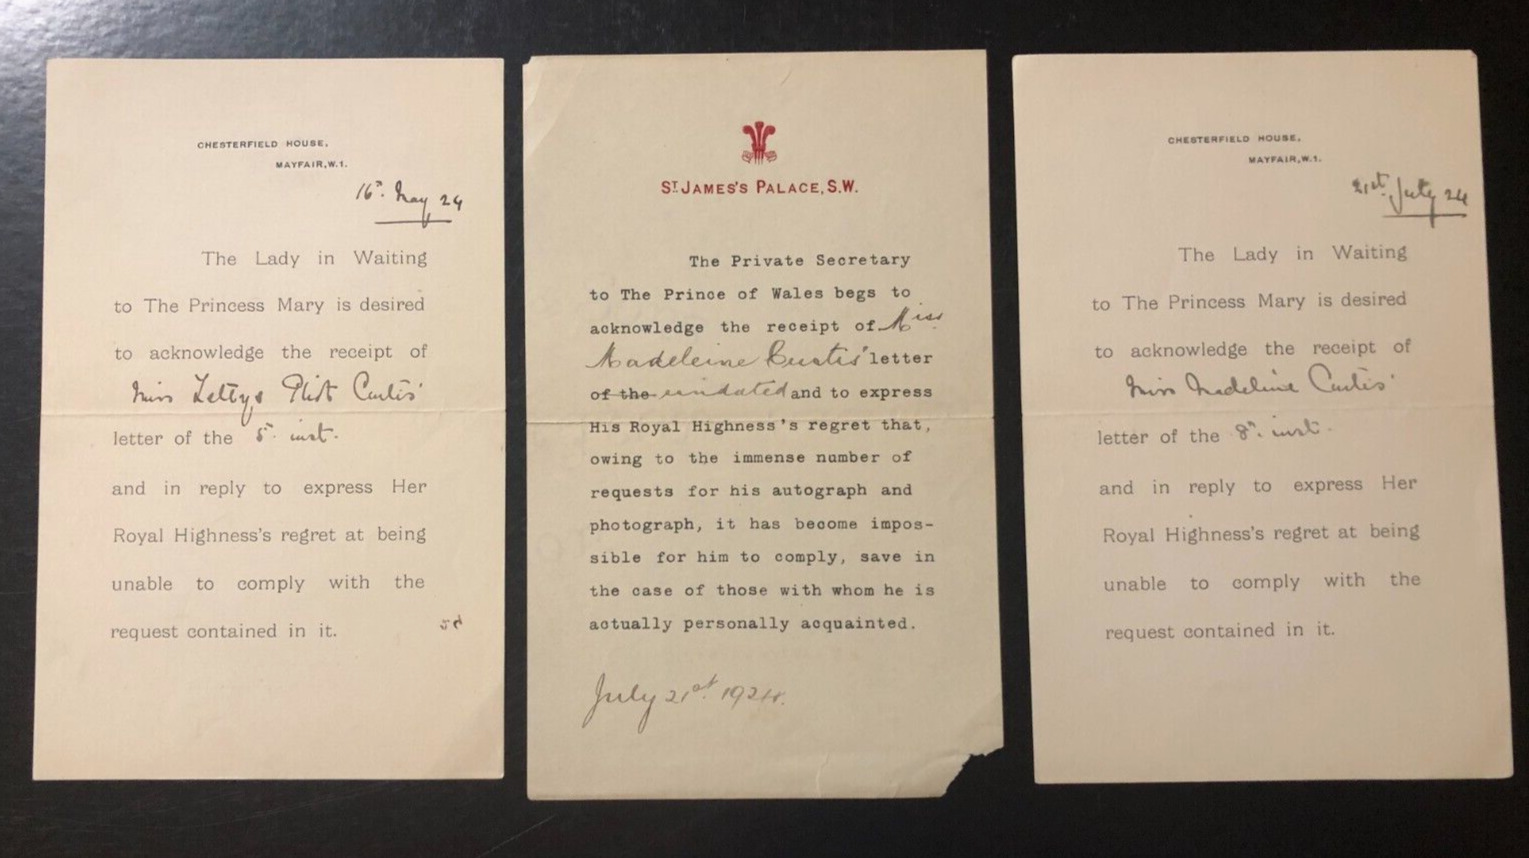 CHESTERFIELD HOUSE,
MAYFAIR, W.1.
16th May 24
The Lady in Waiting
to The Princess Mary is desired
to acknowledge the receipt of
Miss Curtis'
letter of the 5th inst.
and in reply to express Her
Royal Highness's regret at being
unable to comply with the
request contained in it.
ST JAMES'S PALACE, S.W.
The Private Secretary
to The Prince of Wales begs to
acknowledge the receipt of Miss
Madeleine Curtis' letter
of the undated and to express
His Royal Highness's regret that,
owing to the immense number of
requests for his autograph and
photograph, it has become impos-
sible for him to comply, save in
the case of those with whom he is
actually personally acquainted.
July 21st 1924.
CHESTERFIELD HOUSE,
MAYFAIR, W.1.
21st July 24
The Lady in Waiting
to The Princess Mary is desired
to acknowledge the receipt of
Miss Madeline Curtis'
letter of the 8th inst.
and in reply to express Her
Royal Highness's regret at being
unable to comply with the
request contained in it.